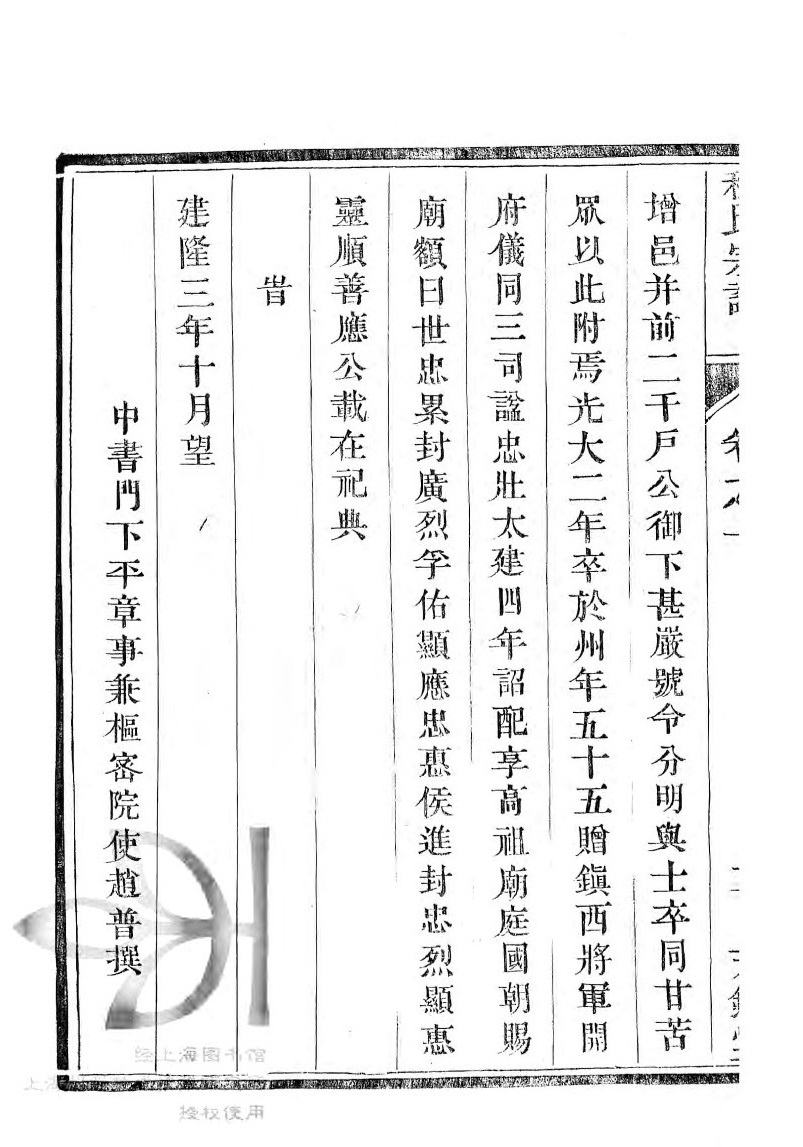 增邑并前二千戶公御下甚嚴號令分明與士卒同甘苦
眾以此附焉光大二年卒於州年五十五贈鎮西將軍開
府儀同三司諡忠壯太建四年詔配享高祖廟庭國朝賜
廟額曰世忠累封廣烈孚佑顯應忠惠侯進封忠烈顯惠
靈順善應公載在祀典
旹
建隆三年十月望
中書門下平章事兼樞密院使趙普撰
经上海图书馆
授权使用